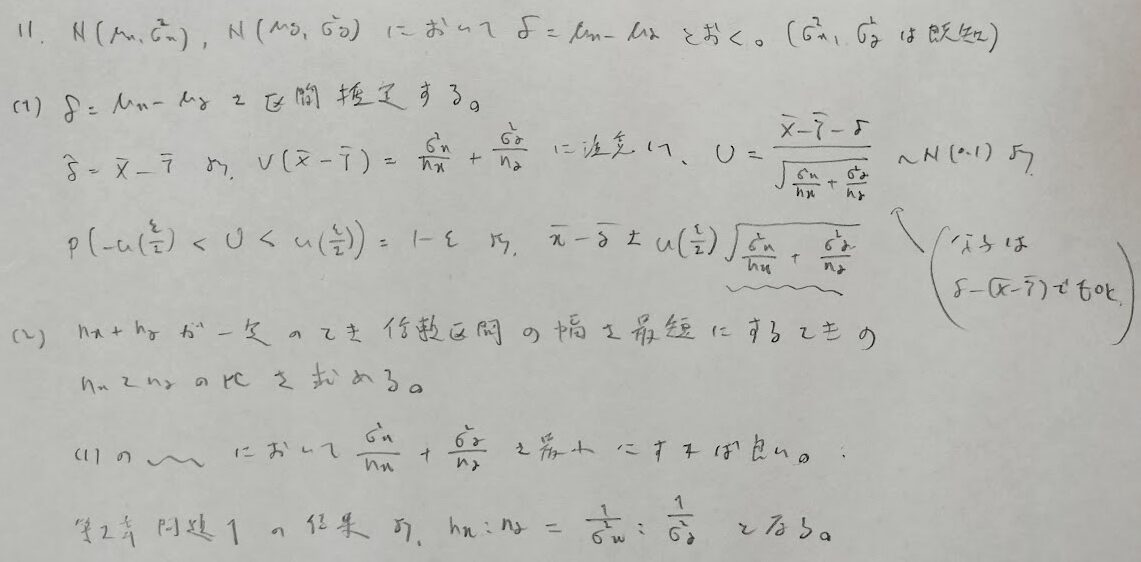 11. N(μx, σ²x), N(μy, σ²y) において δ = μx − μy とおく。(σ²x, σ²y は既知)
(1) δ = μx − μy を区間推定する。
δ̂ = x̄ − ȳ より, V(x̄ − ȳ) = σ²x/nx + σ²y/ny に注意して、 U = (x̄ − ȳ − δ)/√(σ²x/nx + σ²y/ny) ~ N(0,1) より
P(−u(ε/2) < U < u(ε/2)) = 1 − ε より, x̄ − ȳ ± u(ε/2)√(σ²x/nx + σ²y/ny)
(分子は
δ − (x̄ − ȳ) でもok.)
(2) nx + ny が一定のとき信頼区間の幅を最短にするときの
nx と ny の比を求める。
(1) の 〜〜 において σ²x/nx + σ²y/ny を最小にすれば良い。
第2章 問題1 の結果より, nx : ny = 1/σ²x : 1/σ²y となる。